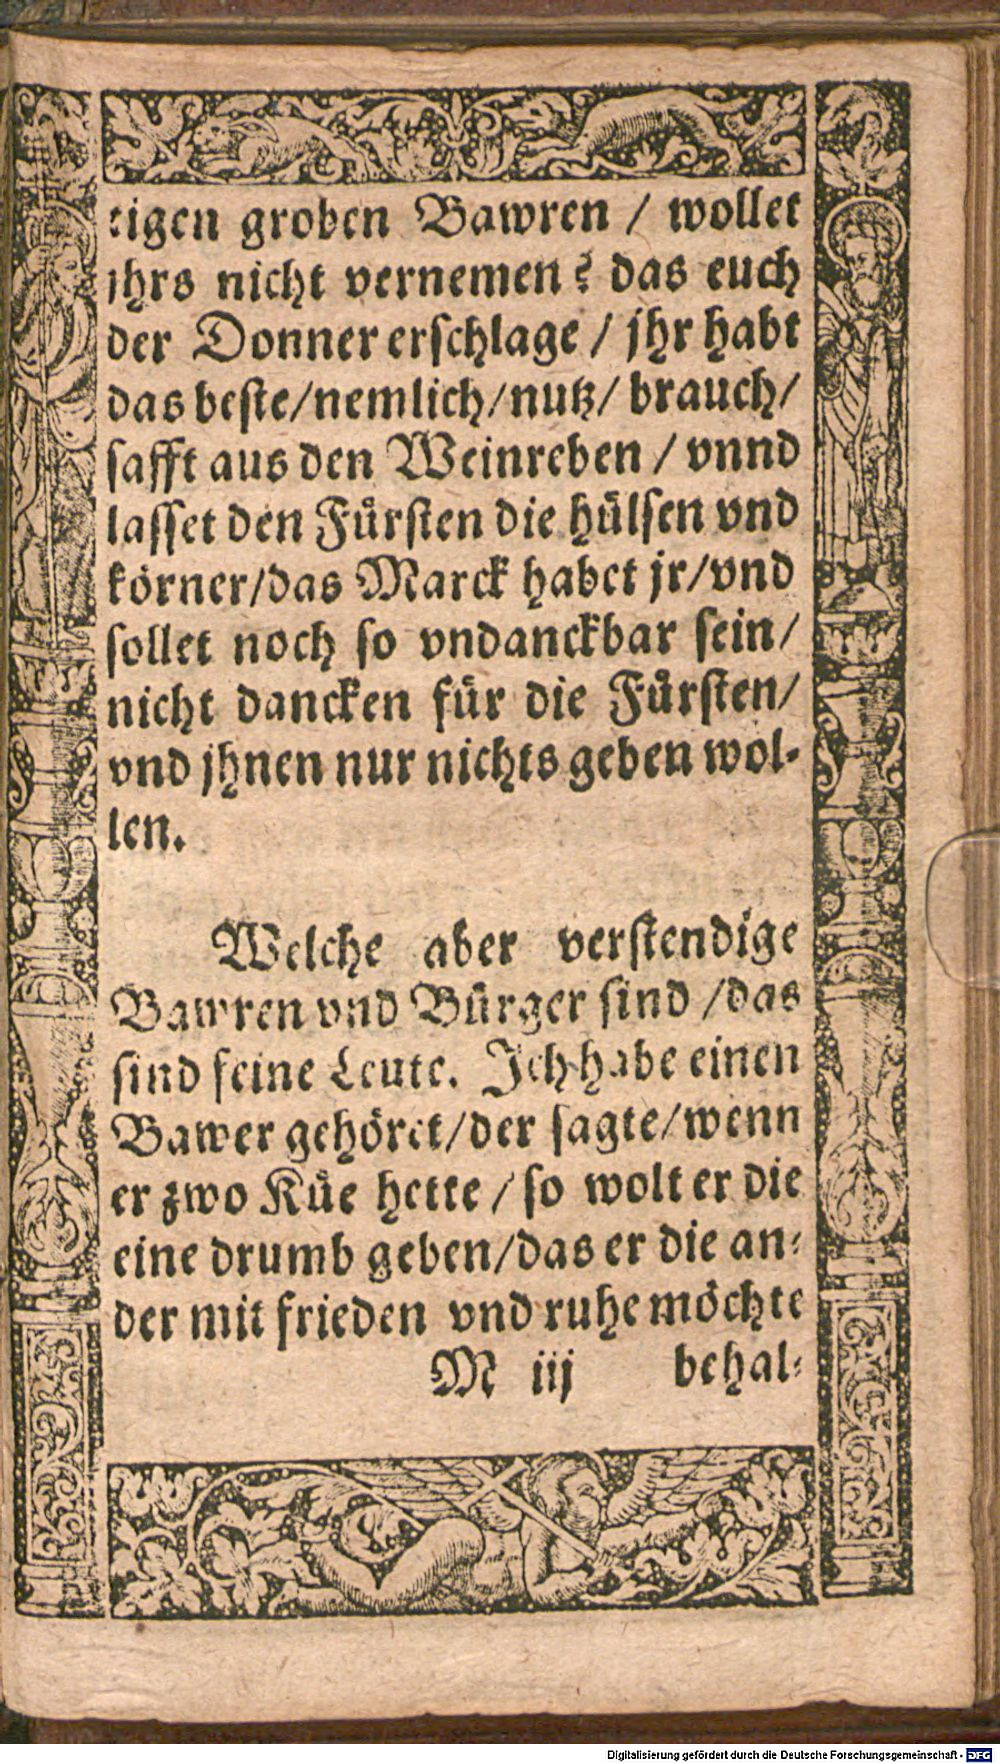 tigen groben Bawren / wollet
jhrs nicht vernemen? das euch
der Donner erschlage / jhr habt
das beste/nemlich/nutz/ brauch/
safft aus den Weinreben / vnnd
lasset den Fürsten die hülsen vnd
körner/das Marck habet jr/vnd
sollet noch so vndanckbar sein/
nicht dancken für die Fürsten/
vnd jhnen nur nichts geben wol-
len.
Welche aber verstendige
Bawren vnd Bürger sind /das
sind feine Leute. Ich habe einen
Bawer gehöret/der sagte/wenn
er zwo Küe hette / so wolt er die
eine drumb geben/das er die an-
der mit frieden vnd ruhe möchte
M iij behal-
Digitalisierung gefördert durch die Deutsche Forschungsgemeinschaft - DFG